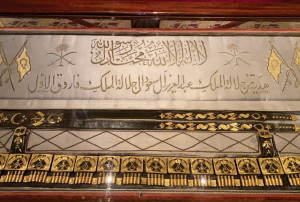 لا إله إلا الله محمد رسول الله
هدية من جلالة الملك عبد العزيز آل سعود إلى جلالة الملك فاروق الأول